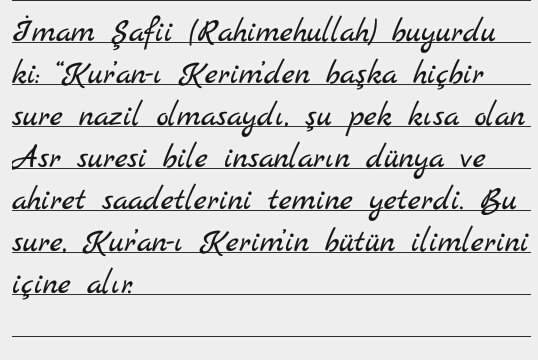 İmam Şafii (Rahimehullah) buyurdu
ki: “Kur’an-ı Kerim’den başka hiçbir
sure nazil olmasaydı, şu pek kısa olan
Asr suresi bile insanların dünya ve
ahiret saadetlerini temine yeterdi. Bu
sure, Kur’an-ı Kerim’in bütün ilimlerini
içine alır.